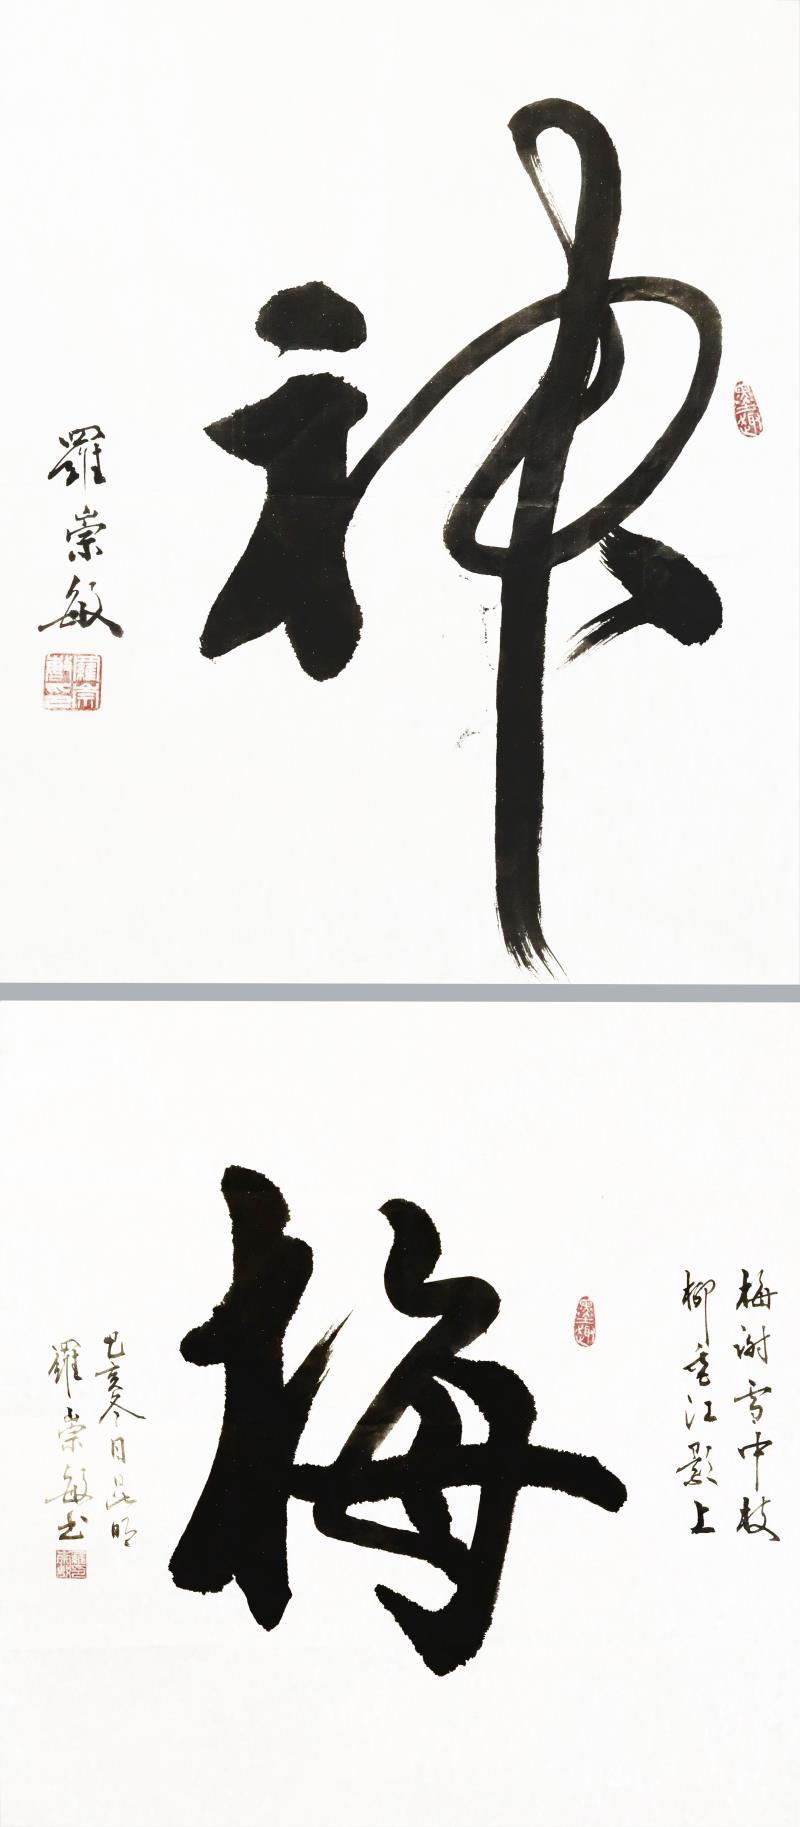 神
羅崇敏
梅谢雪中枝
柳垂江影上
梅
己亥冬月昆明
羅崇敏书